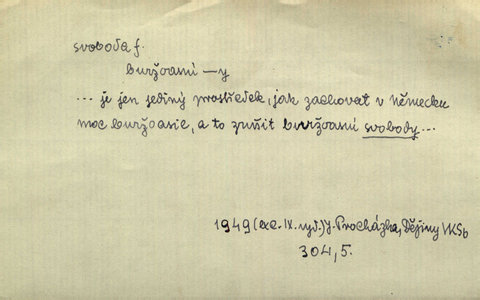 svoboda f.
buržoasní —y
... je jen jediný prostředek, jak zachovat v Německu
moc buržoasie, a to zrušit buržoasní svobody ...
1949 (exc. IX. vyd.) J. Procházka, Dějiny VKSb
304,5.